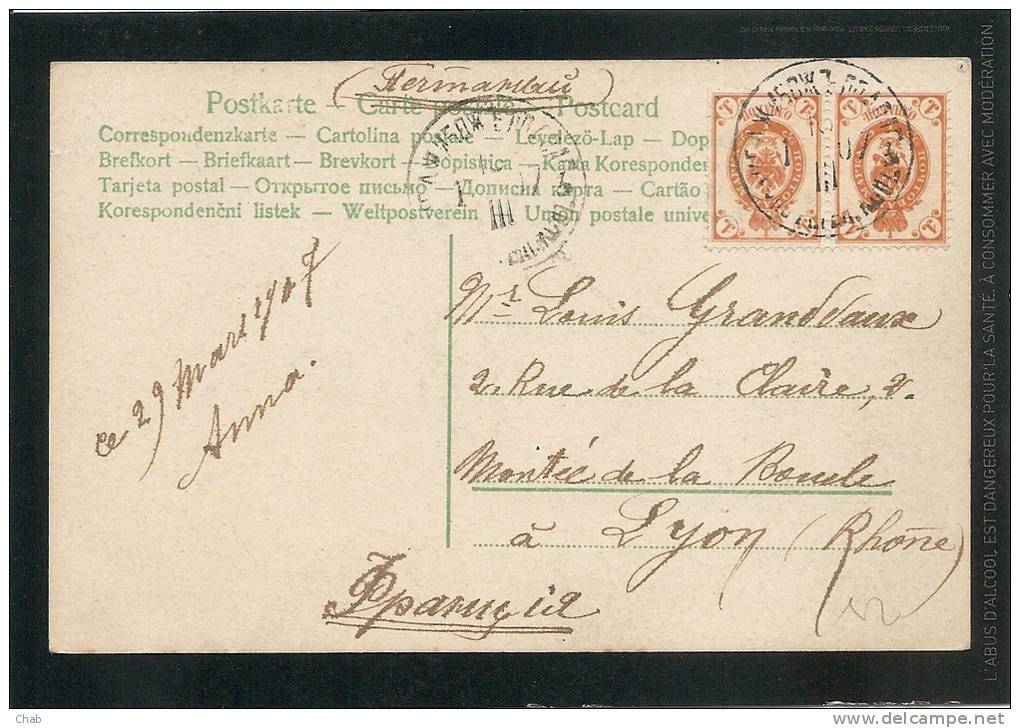 (Германiей)
Postkarte – Carte postale – Postcard
Correspondenzkarte – Cartolina postale – Levelező-Lap – Dop
Brefkort – Briefkaart – Brevkort – Dopisnica – Karta Korespondenc
Tarjeta postal – Открытое письмо – Дописна карта – Cartão
Korespondenční listek – Weltpostverein – Union postale unive
Mr Louis Grandvaux
2. Rue de la Claire, 2.
Montée de la Boucle
à Lyon (Rhône)
Францiя
ce 29 Mars 1907
Anna.
L'ABUS D'ALCOOL EST DANGEREUX POUR LA SANTÉ. À CONSOMMER AVEC MODÉRATION.
Chab
http://www.delcampe.net